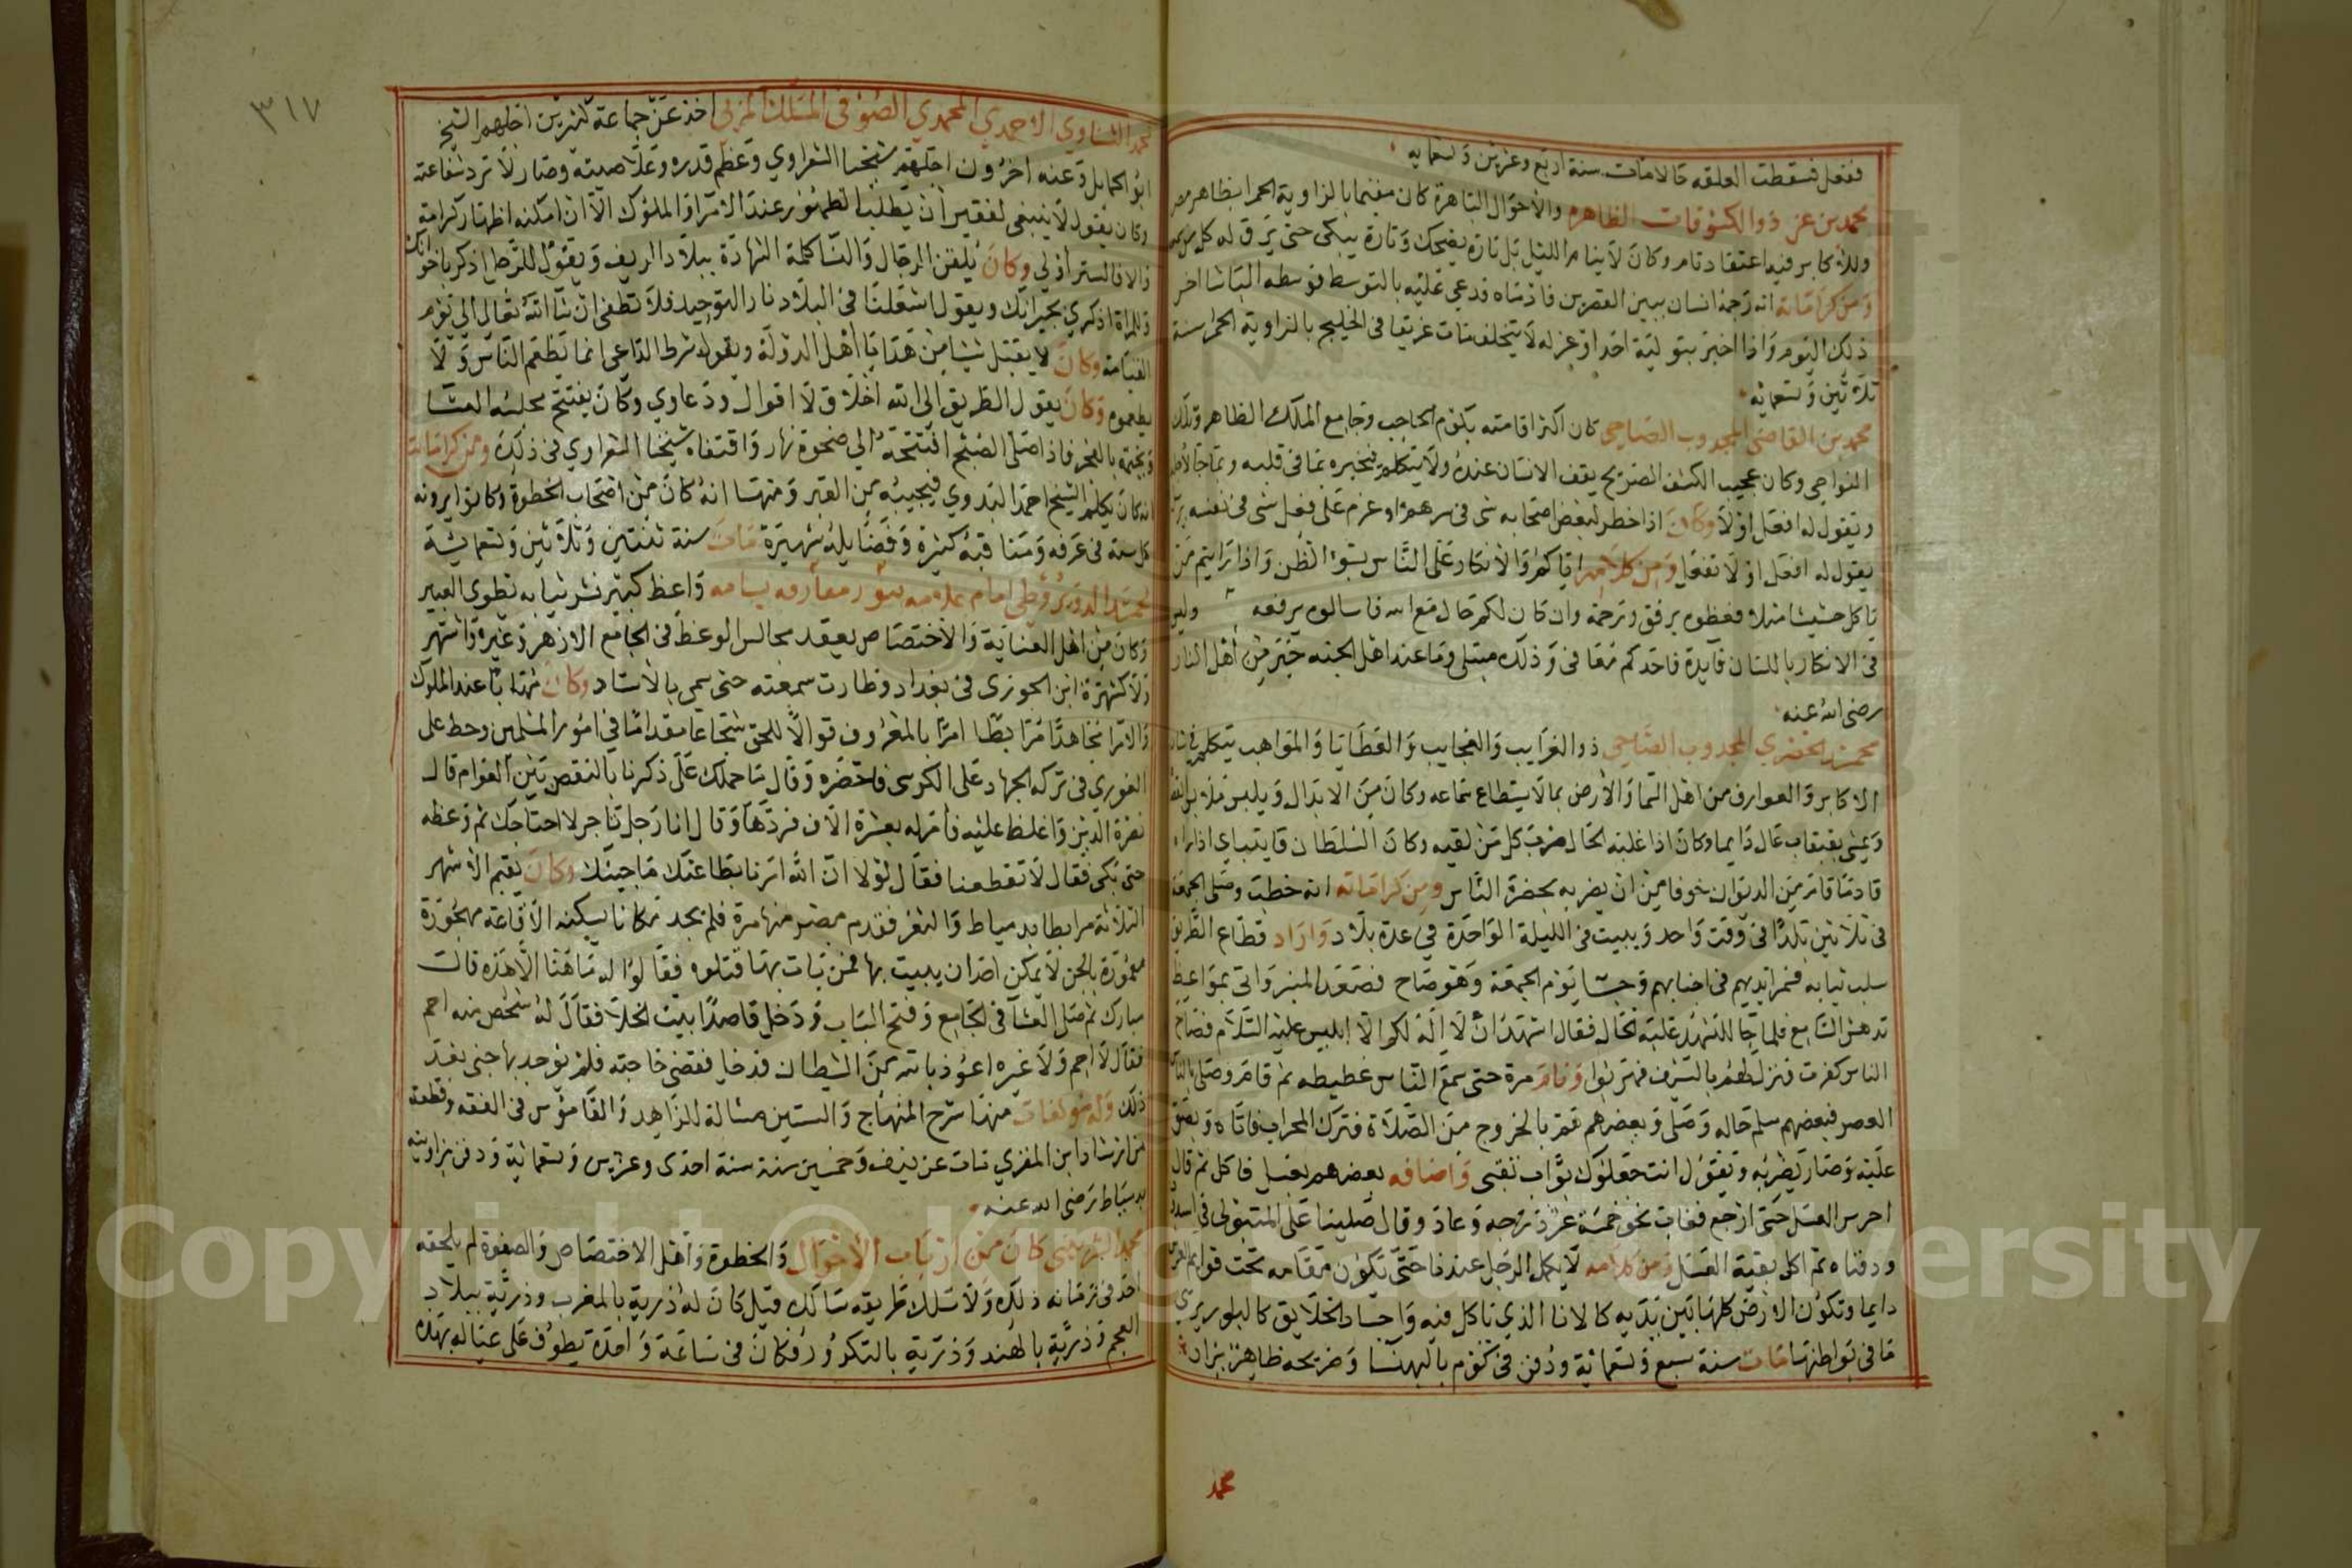 ففعل فسقطت العلقه حالا مات سنة اربع وعشرين وتسعمايه
محمد بن عز ذو الكشوفات الظاهرة والأحوال الباهرة كان مقيما بالزاوية الحمرا بظاهر مصر
وللأكابر فيه اعتقاد تام وكان لا ينام الليل بل تارة يضحك وتارة يبكى حتى يرق له كل من
ومن كراماته انه زحمه انسان ببين القصرين فاذاه فدعى عليه بالتوسط فوسطه الباشا اخر
ذلك اليوم واذا اخبر بتولية احد او عزله لا يتخلف مات غريقا فى الخليج بالزاوية الحمرا سنة
ثلاثين وتسعمايه
محمد بن القاضى المجدوب الصاحى كان اكثر اقامته بكوم الحاجب وجامع الملك الظاهر وتلك
النواحى وكان عجيب الكشف الصريح يقف الانسان عنده ولا يتكلم فيخبره بما فى قلبه وبما جا لأجله
ويقول له افعل اولا وكان اذا خطر لبعض اصحابه شى فى سرهم او عزم على فعل شى فى نفسه
يقول له افعل او لا تفعل ومن كلامه اياكم والانكار على الناس بسؤ الظن واذا رايتم من
ياكل حشيشا مثلا فعظوه برفق ورحمة وان كان لكم حال مع الله فاسالوه يرفعه وليس
فى الانكار باللسان فايدة فاحدكم معافى وذلك مبتلى وما عند اهل الجنه خبر من أهل النار
رضى الله عنه
محمد الحضرى المجدوب الصاحى ذو الغرايب والعجايب والعطايا والمواهب يتكلم فى شان
الاكابر والعوارف من اهل السما والأرض بما لا يستطاع سماعه وكان من الابدال ويلبس
ويمشى بقبقاب عال دايما وكان اذا غلبه الحال ضرب كل من لقيه وكان السلطان قايتباى اذا راه
قادما قام من الديوان خوفا من ان يضربه بحضرة الناس ومن كراماته انه خطب وصلى الجمعة
فى ثلاثين بلدا فى وقت واحد ويبيت فى الليلة الواحدة في عدة بلاد واراد قطاع الطريق
سلب ثيابه فسمر ايديهم فى اجنابهم وجا يوم الجمعة وهو صاح فصعد المنبر واتى بمواعظ
تدهش السامع فلما جا للتشهد غلبه الحال فقال اشهد ان لا اله لكم الا ابليس عليه السلام فصاح
الناس كفرت فنزل لهم بالسيف فهربوا ونام مرة حتى سمع الناس غطيطه ثم قام وصلى بالناس
العصر فبعضهم سلم حاله وصلى وبعضهم هم بالخروج من الصلاة فترك المحراب فاتاه
عليه وصار يضربه ويقول انت جعلوك بواب ثقبى واضافه بعضهم بعسل فاكل ثم قال
احرس العسل حتى ارجع فغاب نحو خمسة عشر درجه وعاد وقال صلينا على المتبولى في اسدود
ودفناه ثم اكل بقية العسل ومن كلامه لا يكمل الرجل عندنا حتى تكون مقامه تحت قوايم العرش
دايما وتكون الارض كلها بين يديه كالانا الذي ناكل فيه واجساد الخلايق كالبلور يرى
ما فى بواطنها مات سنة سبع وتسعمائة ودفن فى كوم بالبهنسا وضريحه ظاهر يزار
محمد
٣١٧
محمد الشناوي الاحمدي المحمدي الصوفى المسلك المربى اخذ عن جماعة كثيرين اجلهم الشيخ
ابو الحمايل وعنه اخرون اجلهم شيخنا الشعراوي وعظم قدره وعلا صيته وصار لا ترد شفاعته
وكان يقول لا ينبغى لفقير ان يطلب الظهور عند الامرا والملوك الا ان امكنه اظهار كرامة
والا فالستر اولي وكان يلقن الرجال والنسا كلمة الشهادة ببلاد الريف ويقول للرجل اذكر باخوانك
وللمراة اذكري بجيرانك ويقول اشعلنا فى البلاد نار التوحيد فلا تطفى ان شا الله تعالى الي يوم
القيامة وكان لا يقبل شيا من هدايا أهل الدولة ويقول شرط الداعى انما يطعم الناس ولا
يطعموه وكان يقول الطريق الى الله اخلاق لا اقوال ودعاوي وكان يفتتح مجلسه العشا
ويختمه بالفجر فاذا صلى الصبح افتتحه الي ضحوة نهار واقتفاه شيخنا الشعراوي فى ذلك ومن كراماته
انه كان يكلم الشيخ احمد البدوي فيجيبه من القبر ومنها انه كان من اصحاب الخطوة وكانوا يرونه
كل سنة فى عرفه ومناقبه كثيرة وفضايله شهيرة مات سنة ثنتين وثلاثين وتسعمائية
محمد الديروطى امام علامه بنور معارفه يسامه واعظ كبير نشر ثيابه تطوى العبير
وكان من اهل العناية والاختصاص يعقد مجالس الوعظ فى الجامع الازهر وغيره واشتهر
ولا كشهرة ابن الجوزى فى بغداد وطارت سمعته حتى سمى بالأستاد وكان مهابا عند الملوك
والامرا مجاهدا مرابطا امرا بالمعروف قوالا للحق شجاعا مقداما في امور المسلمين وحط على
الغورى فى تركه الجهاد على الكرسى فاحضره وقال ما حملك على ذكرنا بالنقص بين العوام قال
نصرة الدين واغلظ عليه فامر له بعشرة الاف فردها وقال انا رجل تاجر لا احتاجك ثم وعظه
حتى بكى فقال لا تقطعنا فقال لولا ان الله امرنا بطاعتك ما جيتك وكان يقيم الأشهر
الثلاثة مرابطا بدمياط والثغر فقدم بمصر منها مرة فلم يجد مكانا يسكنه الا قاعه مهجورة
معمورة بالجن لا يمكن احدا ان يبيت بها فمن بات بها قتلوه فقالوا له ما هنا الا هذه قال
مبارك ثم صلى العشا فى الجامع وفتح الباب ودخل قاصدا بيت الخلا فقال له شخص منه احم
فقال لا احم ولا غيره اعوذ بالله من الشيطان فدخل فقضى حاجته فلم يوجد بها جنى بعد
ذلك وله مولفات منها شرح المنهاج والستين مسالة للزاهد والقاموس فى الفقه وقطعة
من ارشاد ابن المقري مات عن نيف وخمسين سنة سنة احدى وعشرين وتسعمائية ودفن بزاويته
بدمياط رضى الله عنه
محمد الشربينى كان من ارباب الأحوال والخطوة واهل الاختصاص والصفوة لم يلحقه
احد فى زمانه ذلك ولا سلك طريقه سالك قيل كان له ذرية بالمغرب وذرية ببلاد
العجم وذرية بالهند وذرية بالتكرور فكان فى ساعة واحدة يطوف على عياله بهذه
Copyright © King Saud University